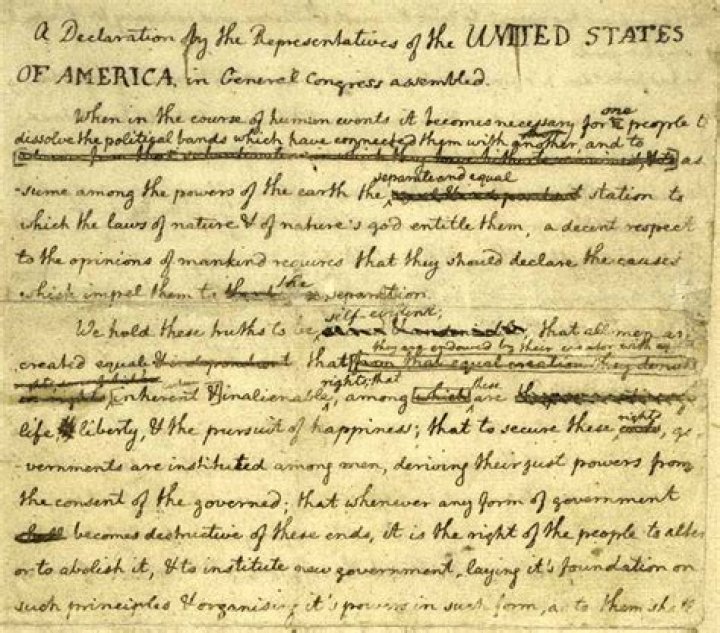 A Declaration by the Representatives of the UNITED STATES
OF AMERICA, in General Congress assembled.
When in the course of human events it becomes necessary for one people t
dissolve the political bands which have connected them with another, and to
as
separate and equal
-sume among the powers of the earth the station to
which the laws of nature & of nature's god entitle them, a decent respect
to the opinions of mankind requires that they should declare the causes
the
which impel them to separation.
self-evident;
We hold these truths to be, that all men ar
they are endowed by their creator with
created equal & independent that from that equal creation they derive
rights; that
inherent & inalienable, among which these are
life & liberty, & the pursuit of happiness; that to secure these rights, go
-vernments are instituted among men, deriving their just powers from
the consent of the governed; that whenever any form of government
shall becomes destructive of these ends, it is the right of the people to alter
or to abolish it, & to institute new government, laying it's foundation on
such principles & organising it's powers in such form, as to them shall